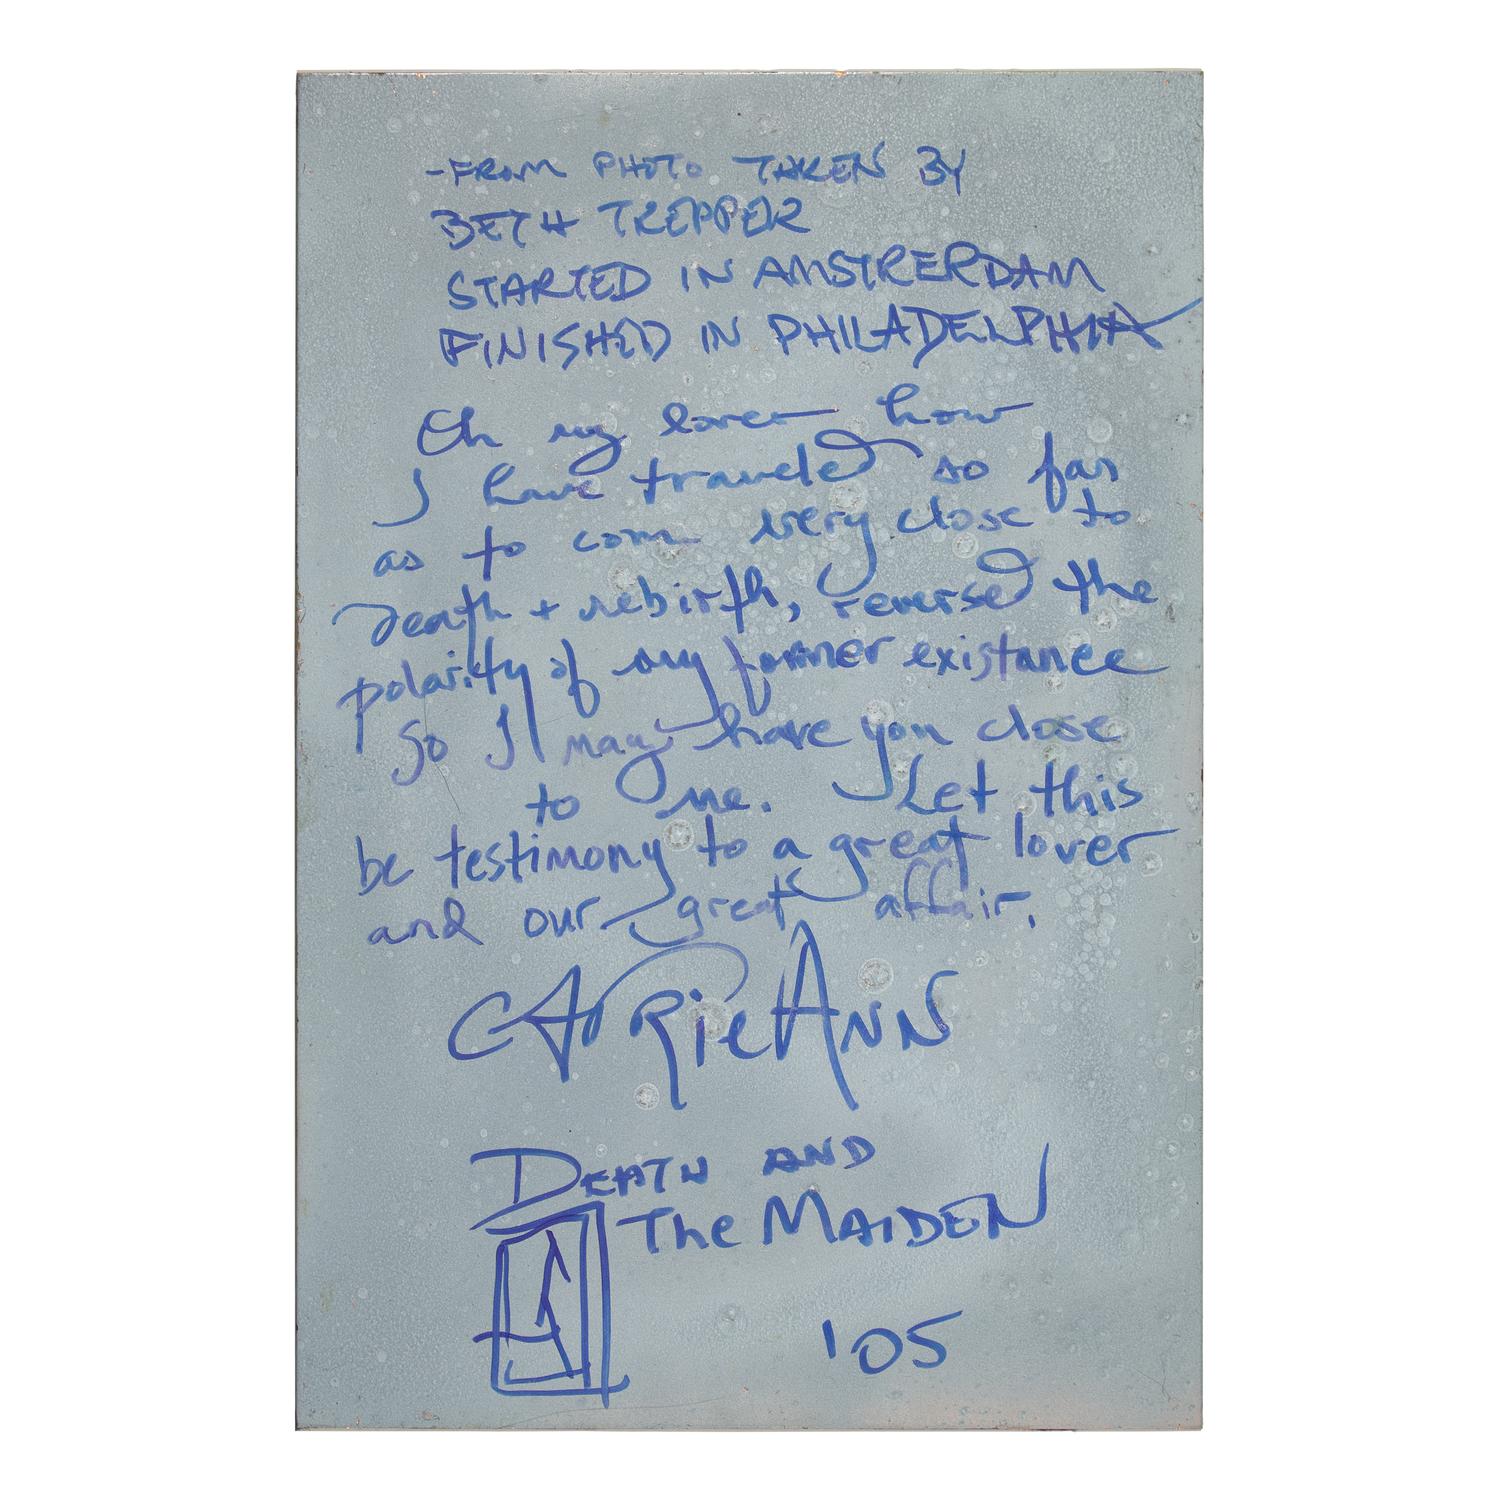 -FROM PHOTO TAKEN BY
BETH TREPPER
STARTED IN AMSTRERDAM
FINISHED IN PHILADELPHIA
Oh my lover how
I have traveled so far
as to come very close to
death + rebirth, reversed the
polarity of my former existance
So I may have you close
to me. Let this
be testimony to a great lover
and our great affair.
CARRieANN
DEATH AND
The MAIDEN
'05